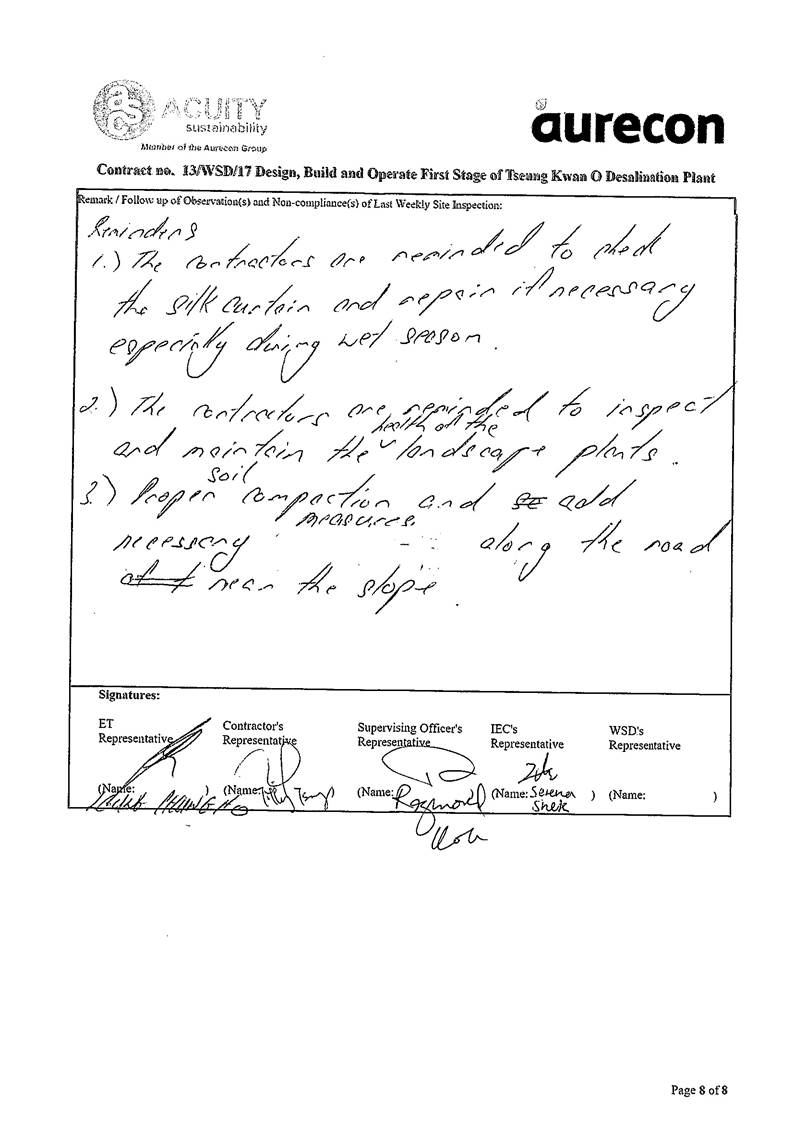 asc
ACUITY
sustainability
Member of the Aurecon Group
aurecon
Contract no. 13/WSD/17 Design, Build and Operate First Stage of Tseung Kwan O Desalination Plant
Remark / Follow up of Observation(s) and Non-compliance(s) of Last Weekly Site Inspection:
Reminders
1.) The contractors are reminded to check
the silk curtain and repair if necessary
especially during wet season.
2.) The contractors are reminded to inspect
and maintain the health of the landscape plants.
3.) Proper soil compaction and add
necessary measures along the road
near the slope.
Signatures:
ET Representative
Contractor's Representative
Supervising Officer's Representative
IEC's Representative
WSD's Representative
(Name: )
(Name:
(Name: Raymond
(Name: Serena Shek )
(Name: )
Page 8 of 8